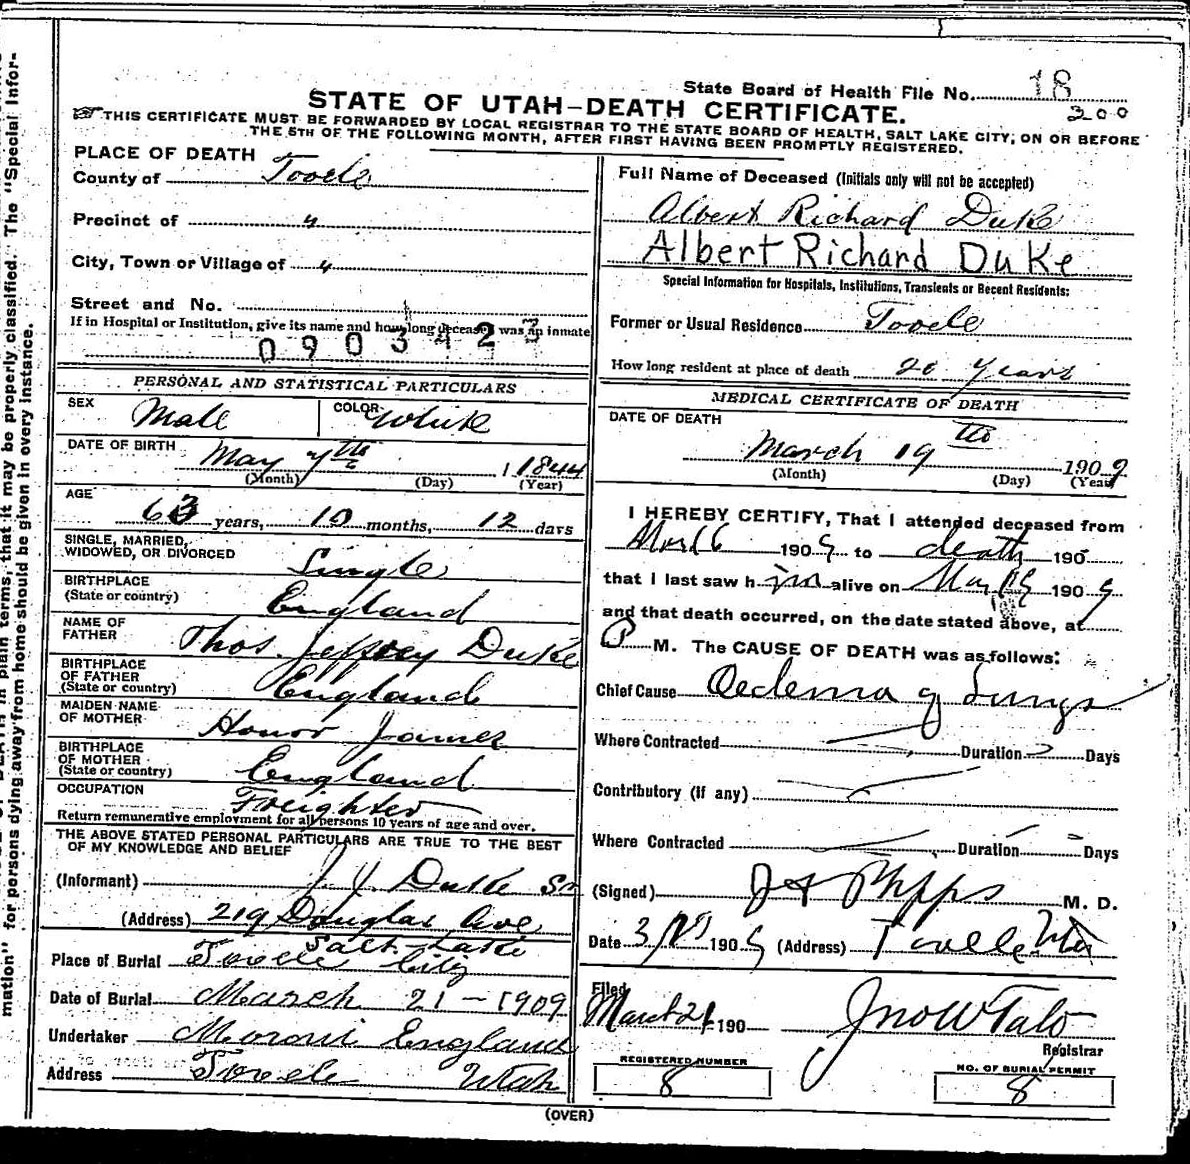 mation" for persons dying away from home should be given in every instance.
in plain terms, that it may be properly classified. The "Special Infor-
State Board of Health File No. 18
300
STATE OF UTAH—DEATH CERTIFICATE.
THIS CERTIFICATE MUST BE FORWARDED BY LOCAL REGISTRAR TO THE STATE BOARD OF HEALTH, SALT LAKE CITY, ON OR BEFORE
THE 5TH OF THE FOLLOWING MONTH, AFTER FIRST HAVING BEEN PROMPTLY REGISTERED.
PLACE OF DEATH
County of Tooele
Precinct of 4
City, Town or Village of 4
Street and No.
If in Hospital or Institution, give its name and how long deceased was an inmate
0903423
PERSONAL AND STATISTICAL PARTICULARS
SEX Male COLOR White
DATE OF BIRTH May 7th 1844
(Month) (Day) (Year)
AGE 63 years, 10 months, 12 days
SINGLE, MARRIED,
WIDOWED, OR DIVORCED Single
BIRTHPLACE
(State or country) England
NAME OF
FATHER Thos. Jeffrey Duke
BIRTHPLACE
OF FATHER
(State or country) England
MAIDEN NAME
OF MOTHER Honor James
BIRTHPLACE
OF MOTHER
(State or country) England
OCCUPATION Freighter
Return remunerative employment for all persons 10 years of age and over.
THE ABOVE STATED PERSONAL PARTICULARS ARE TRUE TO THE BEST
OF MY KNOWLEDGE AND BELIEF
(Informant) J. J. Duke Sr
(Address) 219 Douglas Ave
Salt Lake City
Place of Burial Tooele
Date of Burial March 21 - 1909
Undertaker Moroni England
Address Tooele Utah
Full Name of Deceased (Initials only will not be accepted)
Albert Richard Duke
Albert Richard Duke
Special Information for Hospitals, Institutions, Transients or Recent Residents:
Former or Usual Residence Tooele
How long resident at place of death 20 years
MEDICAL CERTIFICATE OF DEATH
DATE OF DEATH
March 19th 1909
(Month) (Day) (Year)
I HEREBY CERTIFY, That I attended deceased from
1909 to death 190
that I last saw him alive on Mar 19 1909
and that death occurred, on the date stated above, at
P M. The CAUSE OF DEATH was as follows:
Chief Cause Oedema of Lungs
Where Contracted Duration 2 Days
Contributory (if any)
Where Contracted Duration Days
(Signed) Phipps M. D.
Date 1909 (Address) Tooele Utah
Filed
March 21 190 Jno W Tate
Registrar
REGISTERED NUMBER
8
NO. OF BURIAL PERMIT
8
(OVER)